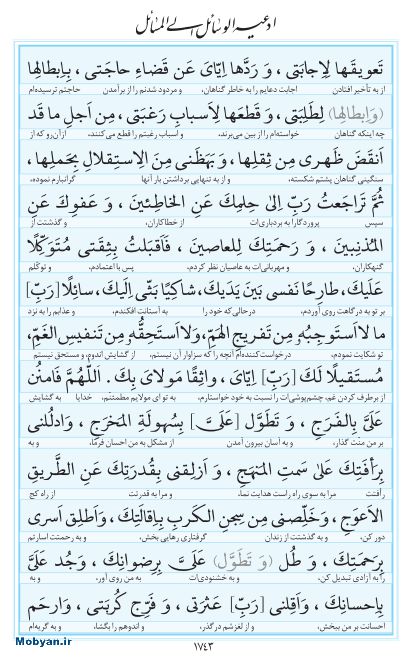 ادعیه الوسائل الی المسائل
تَعویقَها لِاِجابَتی ، وَ رَدَّها اِیّایَ عَن قَضاءِ حاجَتی ، بِاِبطالِها
از به تأخیر افتادن اجابت دعایم را به خاطر گناهان، و مردود شدنم را از برآمدن حاجتم ترسیده‌ام
(وَ اِبطالِها) لِطَلِبَتی ، وَ قَطَعَها لِاَسبابِ رَغبَتی ، مِن اَجلِ ما قَد
چه اینکه گناهان خواسته‌ام را از بین می‌برند، و اسباب رغبتم را قطع می‌کنند، ازآن‌رو که از
اَنقَضَ ظَهری مِن ثِقلِها ، وَ بَهَظَنی مِنَ الاِستِقلالِ بِحَملِها ،
سنگینی گناهان پشتم شکسته، و از به تنهایی برداشتن بار آنها گرانبارم نموده،
ثُمَّ تَراجَعتُ رَبِّ اِلیٰ حِلمِکَ عَنِ الخاطِئینَ ، وَ عَفوِکَ عَنِ
سپس پروردگارا به بردباری‌ات از خطاکاران، و گذشتت از
المُذنِبینَ ، وَ رَحمَتِکَ لِلعاصینَ ، فَاَقبَلتُ بِثِقَتی مُتَوَکِّلًا
گنهکاران، و مهربانی‌ات به عاصیان نظر کردم، پس با اعتمادم، و توکّلم
عَلَیکَ، طارِحًا نَفسی بَینَ یَدَیکَ، شاکِیًا بَثّی اِلَیکَ، سائِلًا [رَبِّ]
بر تو به درگاهت روی آوردم، درحالی که خود را به آستانت افکندم، و عذابم را به نزد
ما لا اَستَوجِبُهُ مِن تَفریجِ الهَمِّ، وَلا اَستَحِقُّهُ مِن تَنفیسِ الغَمِّ،
تو شکایت نمودم، درخواست‌کننده‌ام آنچه را که سزاوار آن نیستم، از گشایش اندوه، و مستحق نیستم
مُستَقیلًا لَکَ [رَبِّ] اِیّایَ ، واثِقًا مَولایَ بِکَ . اَللّهُمَّ فَامنُن
از برطرف کردن غم، چشم‌پوشی‌ات را نسبت به خود خواستارم، به تو ای مولایم مطمئنم، خدایا به گشایش
عَلَیَّ بِالفَرَجِ ، وَ تَطَوَّل [عَلَیَّ] بِسُهولَةِ المَخرَجِ ، وَ ادلُلنی
بر من منت گذار، و به آسان بیرون آمدن از مشکل به من احسان فرما، و به
بِرَأفَتِکَ عَلیٰ سَمتِ المَنهَجِ ، وَ اَزلِقنی بِقُدرَتِکَ عَنِ الطَّریقِ
رأفتت مرا به سوی راه راست هدایت نما، و مرا به قدرتت از راه کج
الاَعوَجِ ، وَ خَلِّصنی مِن سِجنِ الکَربِ بِاِقالَتِکَ، وَ اَطلِق اَسری
دور کن، و به گذشتت از زندان گرفتاری رهایی بخش، و به رحمتت اسارتم
بِرَحمَتِکَ ، وَ طُل (وَ تَطَوَّل) عَلَیَّ بِرِضوانِکَ ، وَ جُد عَلَیَّ
را به آزادی تبدیل کن، و به خشنودی‌ات به من روی آور، و به
بِاِحسانِکَ ، وَ اَقِلنی [رَبِّ] عَثرَتی ، وَ فَرِّج کُربَتی ، وَ ارحَم
احسانت بر من ببخش، و از لغزشم در گذر، و اندوهم را بگشا، و به گریه‌ام
Mobyan.ir
١٧٤٣